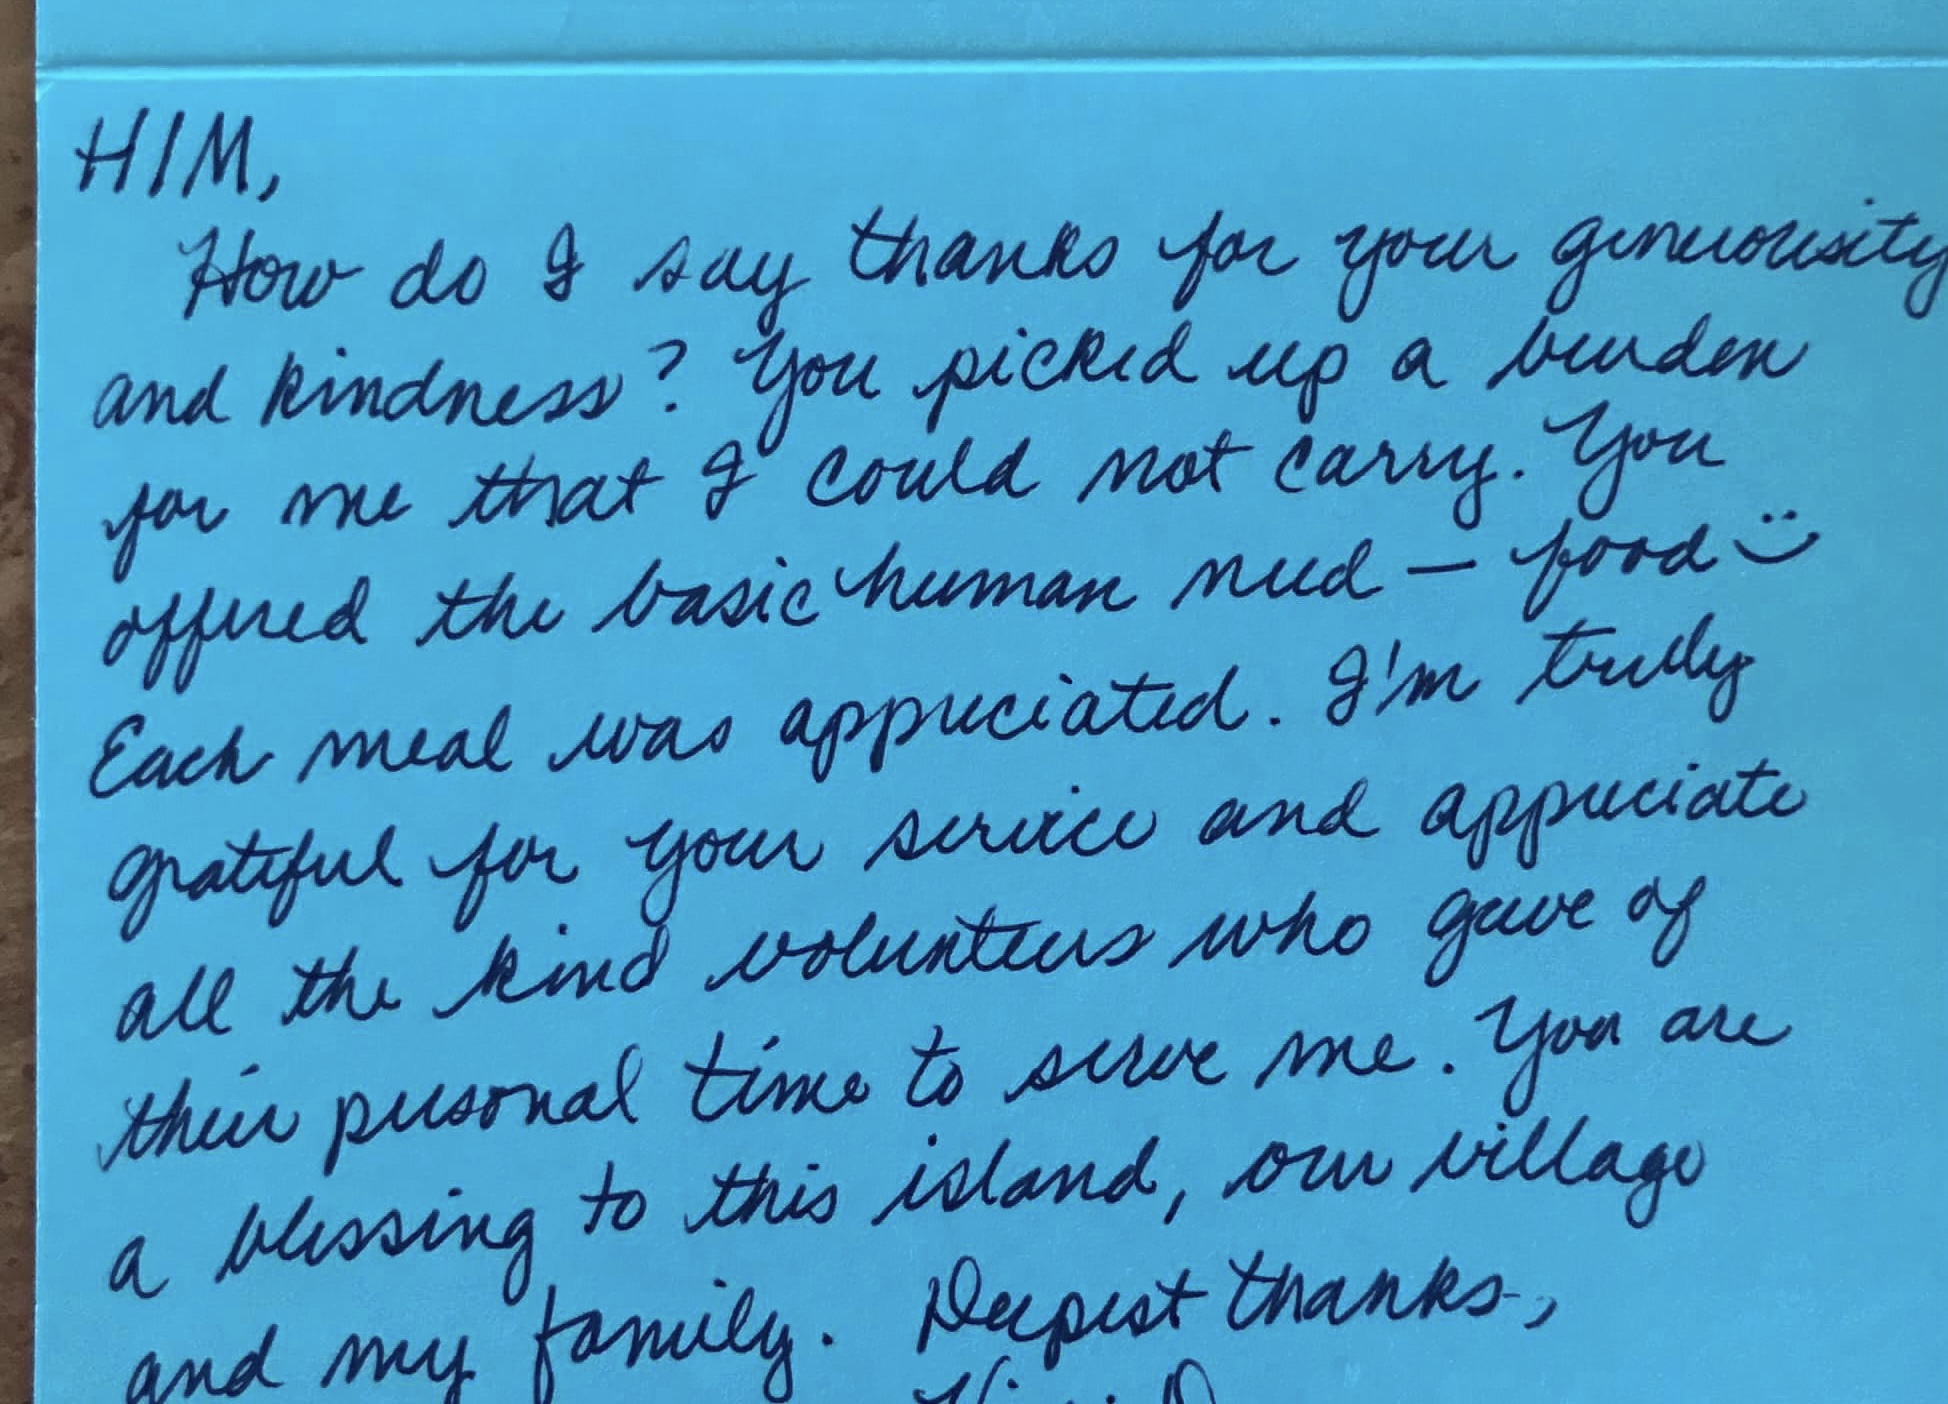 HIM,
How do I say thanks for your generousity
and kindness? You picked up a burden
for me that I could not carry. You
offered the basic human need — food :)
Each meal was appreciated. I'm trully
grateful for your service and appreciate
all the kind volunteers who gave of
their personal time to serve me. You are
a blessing to this island, our village
and my family. Deepest thanks,